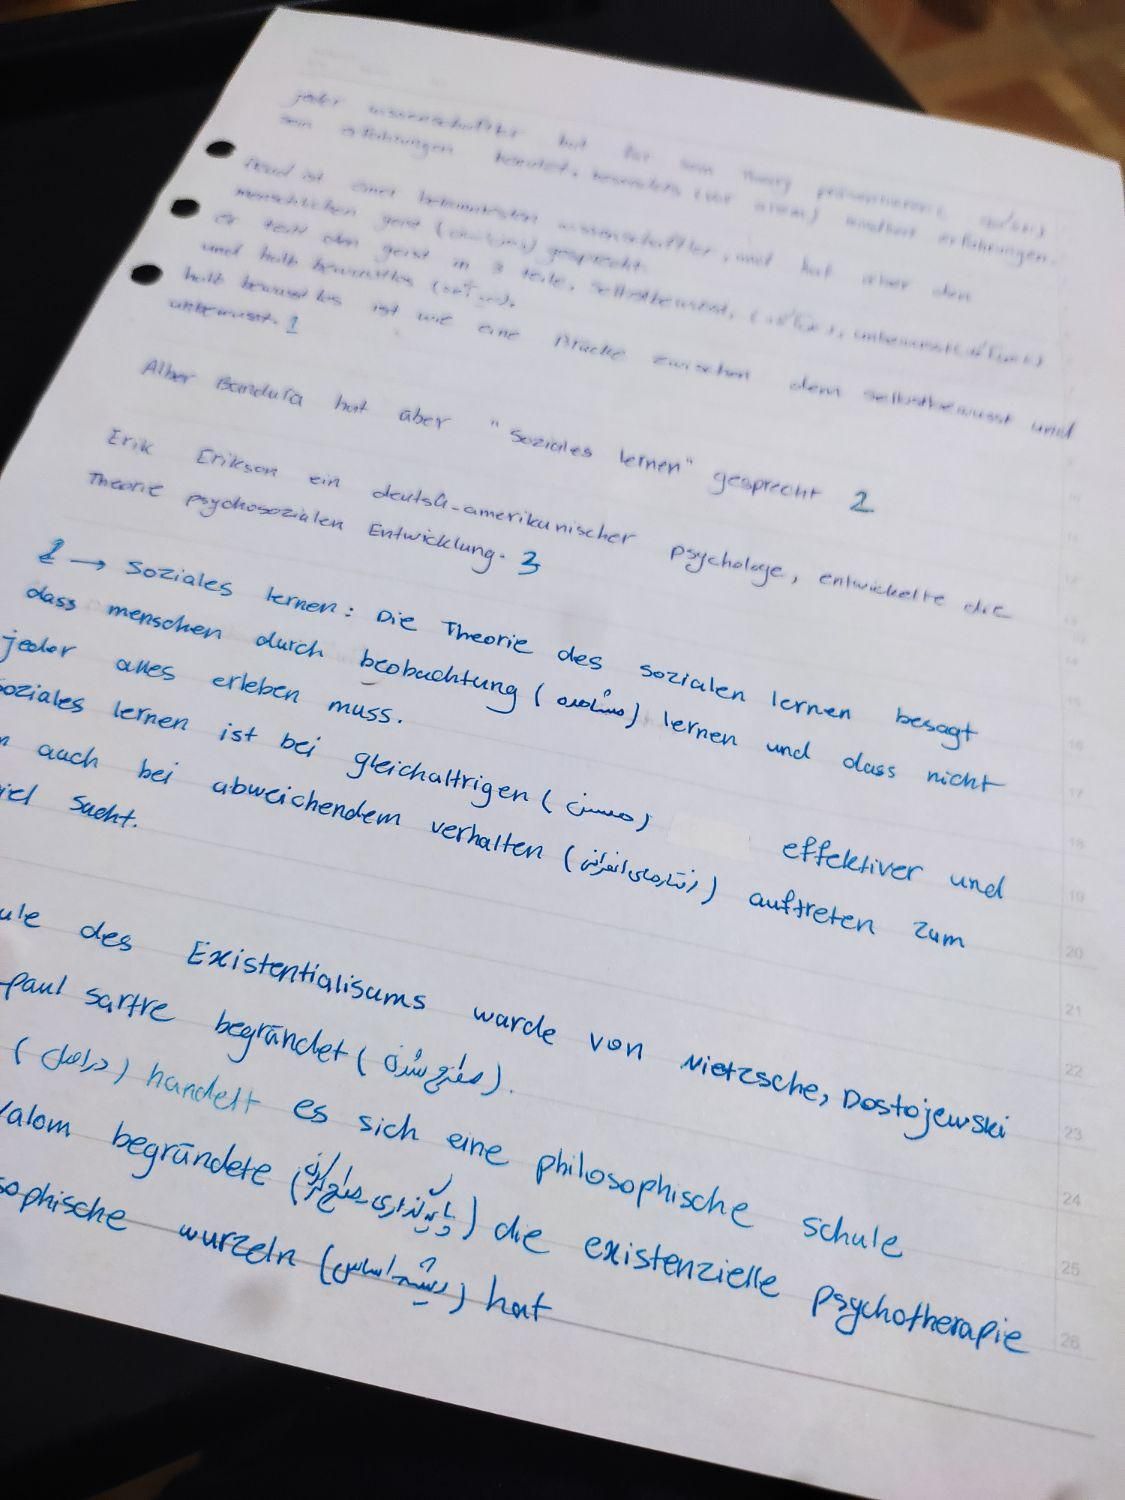 jeder wissenschaftler hat für sein Theory
sein erfahrungen benutzt, besonders (vor allem) kindheit erfahrungen.
Freud ist einer bekanntesten wissenschaftler, und hat aber den
menschlichen geist gesprecht.
er teilt den geist in 3 teile, selbstbewusst, unbewusst
und halb bewusstlos
halb bewusstlos ist wie eine Brücke zwischen dem selbstbewusst und
unbewusst. 1
Alber Bandura hat aber "Soziales lernen" gesprecht 2
Erik Erikson ein deutsch-amerikanischer psychologe, entwickelte die
Theorie psychosozialen Entwicklung. 3
2 → Soziales lernen: Die Theorie des sozialen lernen besagt
dass menschen durch beobachtung (مشاهده) lernen und dass nicht
jeder alles erleben muss.
soziales lernen ist bei gleichaltrigen (همسن) effektiver und
auch bei abweichendem verhalten (رفتارهای انحرافی) auftreten zum
sucht.
des Existentialisums wurde von Nietzsche, Dostojewski
-paul sartre begründet (مطرح شدن).
(دراصل) handelt es sich eine philosophische schule
Yalom begründete die existenzielle psychotherapie
wurzeln (ریشه اساس) hat